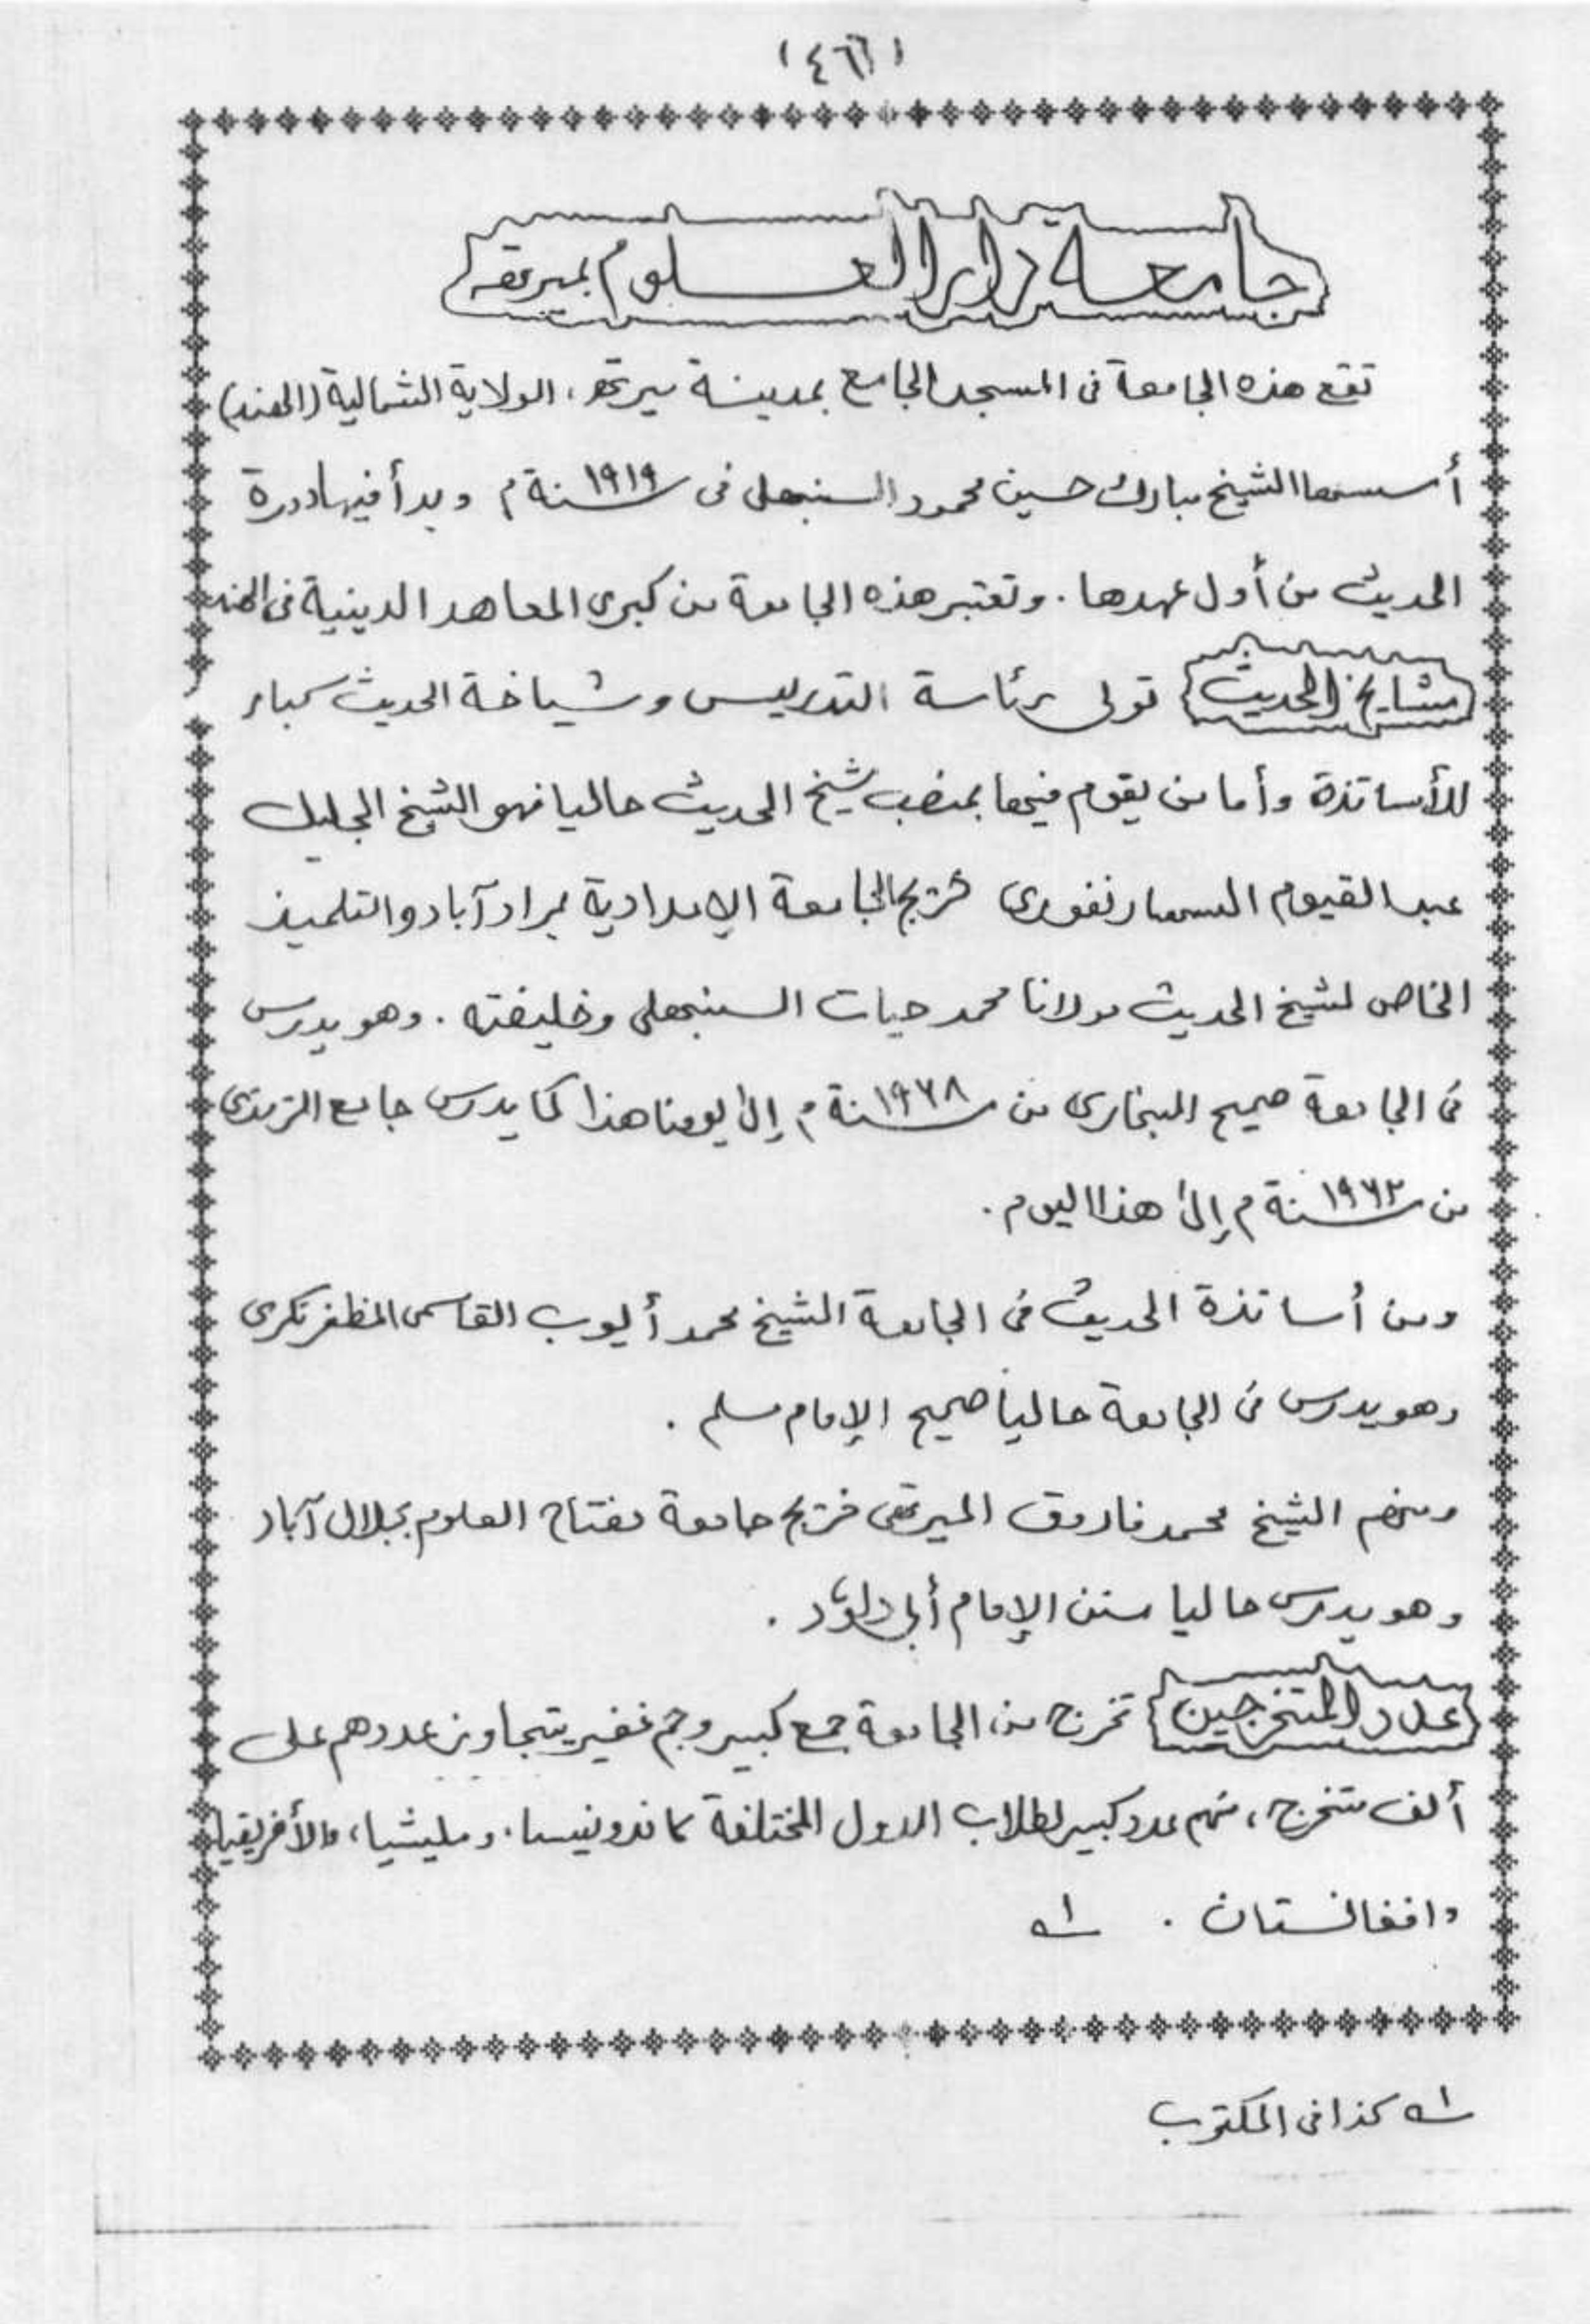 (٤٦٦)
جامعة دار العلوم بميرته
تقع هذه الجامعة فى المسجد الجامع بمدينة ميرته، الولاية الشمالية (الهند)
أسسها الشيخ مبارك حسين محمود السنبهلى فى سنة ١٩١٩م وبدأ فيها دورة
الحديث من أول عهدها. وتعتبر هذه الجامعة من كبرى المعاهد الدينية فى الهند
مشايخ الحديث تولى رئاسة التدريس وشياخة الحديث كبار
للأساتذة وأما من يقوم فيها بمنصب شيخ الحديث حاليا فهو الشيخ الجليل
عبد القيوم السهارنفورى خريج الجامعة الإمدادية بمراد آباد والتلميذ
الخاص لشيخ الحديث مولانا محمد حيات السنبهلى وخليفته. وهو يدرس
فى الجامعة صحيح البخارى من سنة ١٩٦٨م إلى يومنا هذا كما يدرس جامع الترمذى
من سنة ١٩٦٢م إلى هذا اليوم.
ومن أساتذة الحديث فى الجامعة الشيخ محمد أيوب القاسمى المظفرنكرى
وهو يدرس فى الجامعة حاليا صحيح الإمام مسلم.
ومنهم الشيخ محمد فاروق الميرتهى خريج جامعة مفتاح العلوم بجلال آباد
وهو يدرس حاليا سنن الإمام أبى داؤد.
عدد المتخرجين تخرج من الجامعة جمع كبير وجم غفير يتجاوز عددهم على
ألف متخرج، منهم عدد كبير لطلاب الدول المختلفة كاندونيسا، ومليشيا، والأفريقيا
وافغانستان. ١ه
١ه كذا فى المكتوب